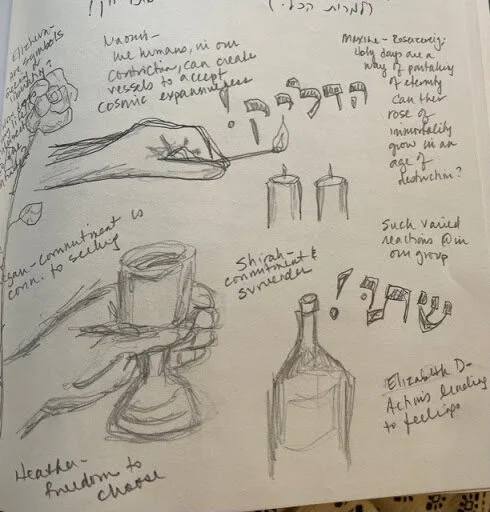 למרות הכל
Elisheva-
on symbols
Naomi-
We humans, in our
contriction, can create
vessels to accept
cosmic expansiveness
Maxine - Rosenzweig:
Holy days are a
way of partaking
of eternity
Can the
rose of
immortality
grow in an
age of
destruction?
הדליקי!
commitment is
conn. to seeking
Shirah-
commitment &
surrender
Such varied
reactions @in
our group
שתי!
Elizabeth D-
Actions leading
to feelings
Heather-
freedom to
choose